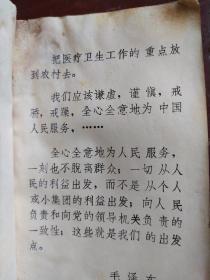 把医疗卫生工作的重点放
到农村去。
我们应该谦虚，谨慎，戒
骄，戒躁，全心全意地为中国
人民服务，……
全心全意地为人民服务，
一刻也不脱离群众；一切从人
民的利益出发，而不是从个人
或小集团的利益出发；向人民
负责和向党的领导机关负责的
一致性；这些就是我们的出发
点。
毛泽东